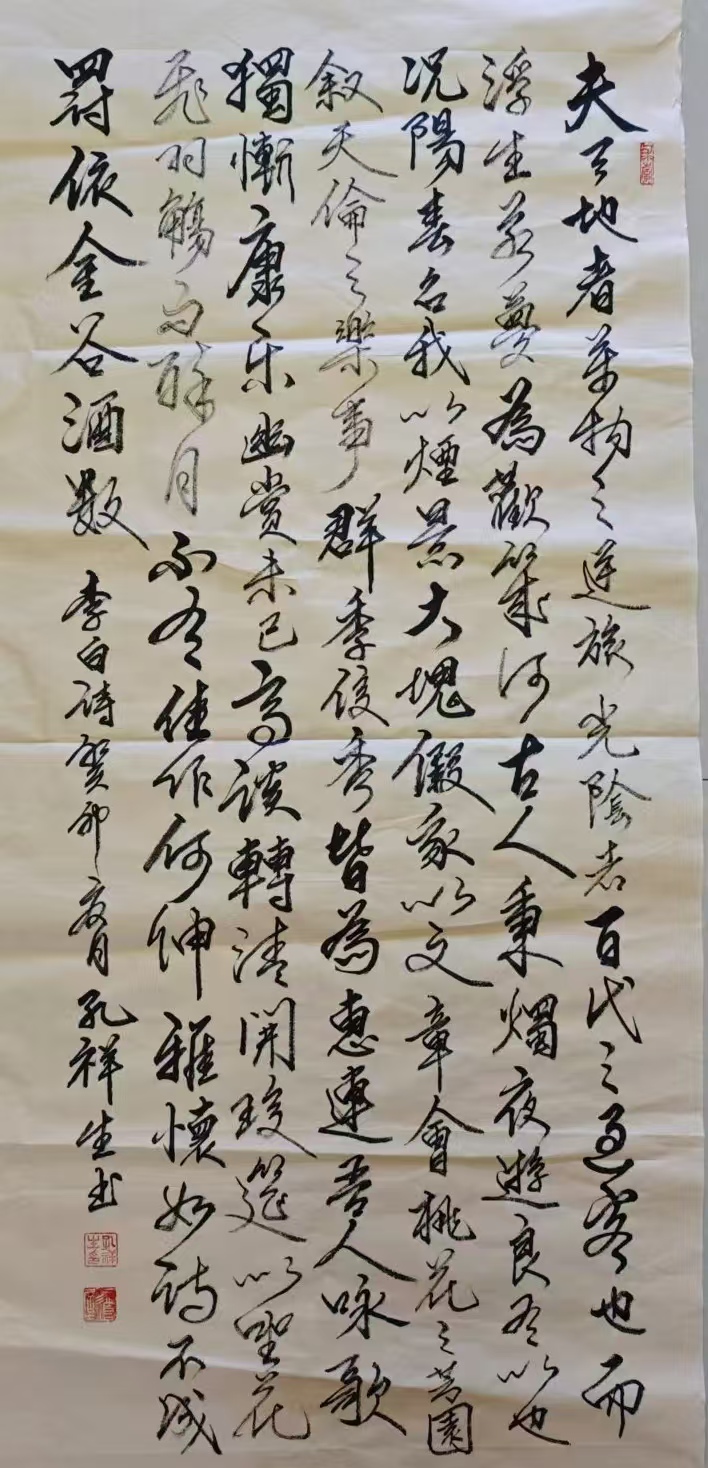 夫天地者萬物之逆旅光陰者百代之過客也而
浮生若夢為歡幾何古人秉燭夜遊良有以也
況陽春召我以煙景大塊假我以文章會桃花之芳園
叙天倫之樂事群季俊秀皆為惠連吾人咏歌
獨慚康乐幽賞未已高談轉清開瓊筵以坐花
飛羽觴而醉月不有佳作何伸雅懷如詩不成
罰依金谷酒數 李白詩癸卯夏月孔祥生书